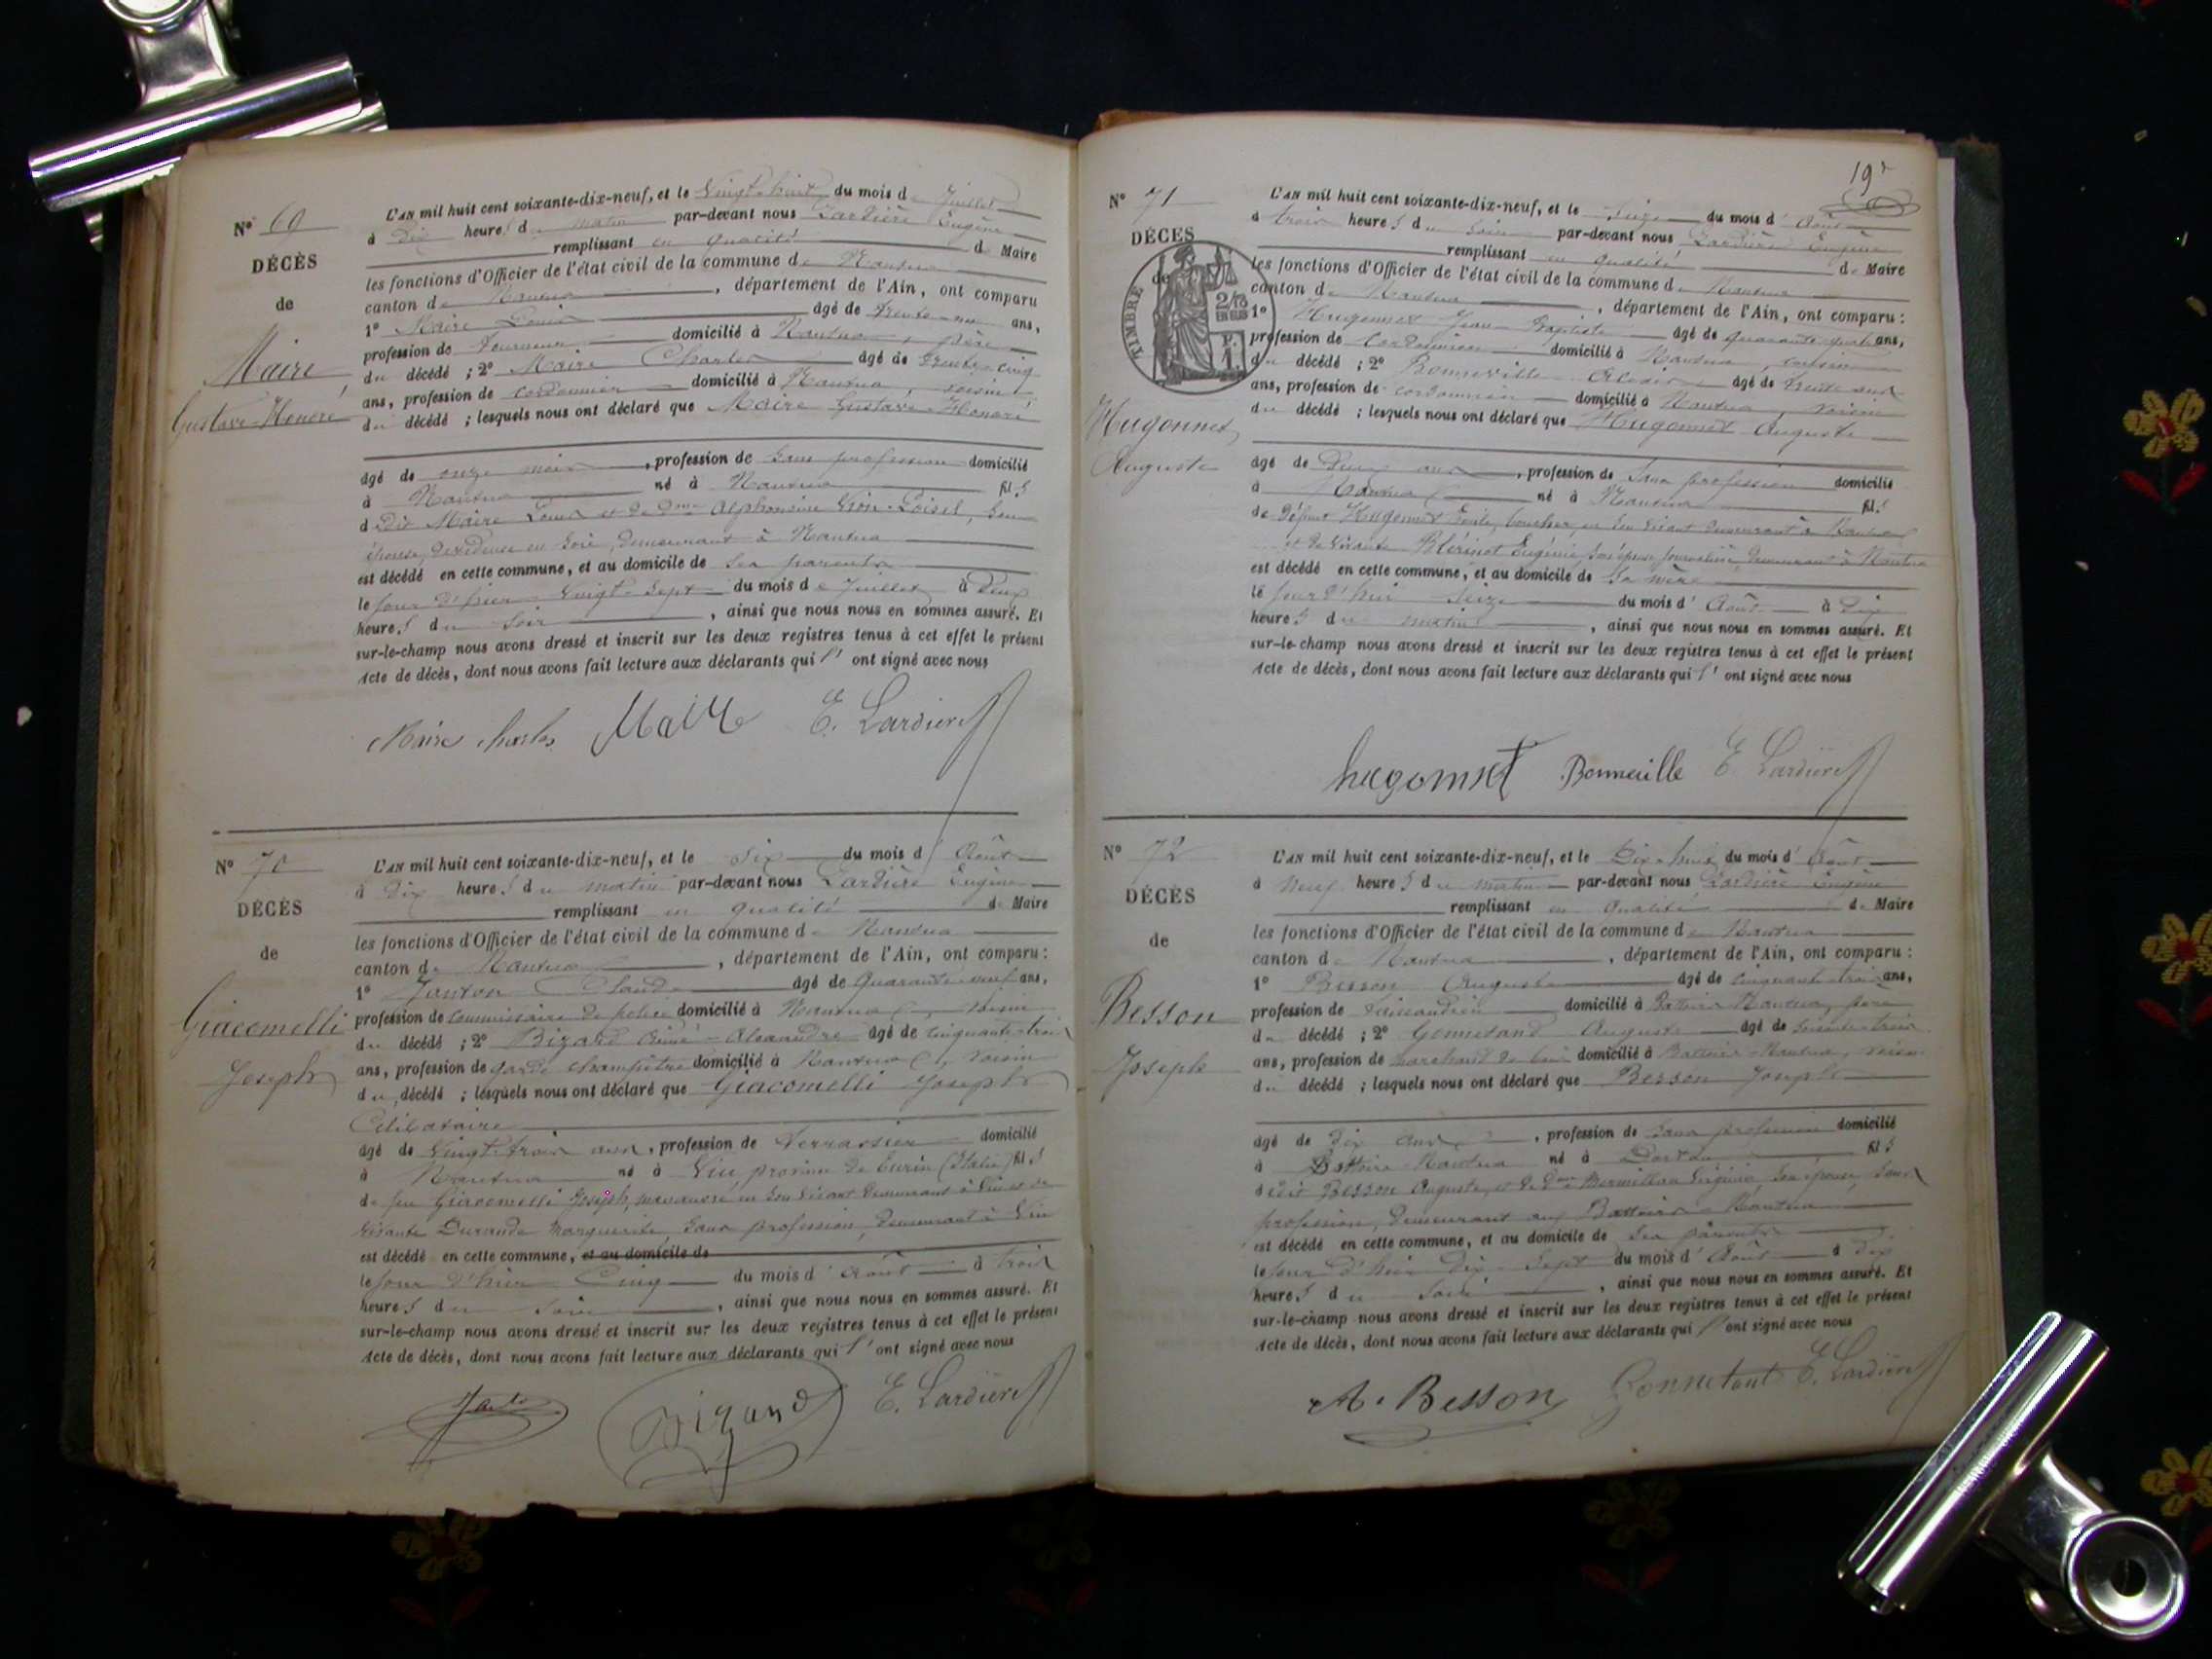 N° 69
DÉCÈS
de
Maire
Gustave-Honoré
L'AN mil huit cent soixante-dix-neuf, et le Vingt-huit du mois de Juillet
à Dix heures du matin par-devant nous Lardière Eugène
remplissant en qualité de Maire
les fonctions d'Officier de l'état civil de la commune de Nantua
canton de Nantua, département de l'Ain, ont comparu
1° Maire Louis âgé de trente-neuf ans,
profession de tourneur domicilié à Nantua, père
du décédé ; 2° Maire Charles âgé de trente-cinq
ans, profession de cordonnier domicilié à Nantua, voisin
du décédé ; lesquels nous ont déclaré que Maire Gustave-Honoré
âgé de onze mois, profession de sans profession domicilié
à Nantua né à Nantua fils
d Dit Maire Louis et de Dme Alphonsine Loisel, son
épouse, dévideuse en soie, demeurant à Nantua
est décédé en cette commune, et au domicile de ses parents
le jour d'hier Vingt-sept du mois de Juillet à Deux
heures du soir, ainsi que nous nous en sommes assuré. Et
sur-le-champ nous avons dressé et inscrit sur les deux registres tenus à cet effet le présent
Acte de décès, dont nous avons fait lecture aux déclarants qui l' ont signé avec nous
Maire charles Maire E. Lardière
N° 70
DÉCÈS
de
Giacomelli
Joseph
L'AN mil huit cent soixante-dix-neuf, et le Six du mois d' Août
à Dix heures du matin par-devant nous Lardière Eugène
remplissant en qualité de Maire
les fonctions d'Officier de l'état civil de la commune de Nantua
canton de Nantua, département de l'Ain, ont comparu :
1° Janton Claude âgé de Quarante-neuf ans,
profession de commissaire de police domicilié à Nantua, voisin
du décédé ; 2° Bigand Aimé-Alexandre âgé de cinquante-trois
ans, profession de garde champêtre domicilié à Nantua, voisin
du décédé ; lesquels nous ont déclaré que Giacomelli Joseph
Célibataire
âgé de Vingt-trois ans, profession de Terrassier domicilié
à Nantua né à Viu province de Turin (Italie) fils
de feu Giacomelli Joseph, manœuvre en son vivant demeurant à Viu et de
vivante Durando Marguerite, sans profession, demeurant à Viu
est décédé en cette commune, et au domicile de
le jour d'hier Cinq du mois d' Août à trois
heures du soir, ainsi que nous nous en sommes assuré. Et
sur-le-champ nous avons dressé et inscrit sur les deux registres tenus à cet effet le présent
Acte de décès, dont nous avons fait lecture aux déclarants qui l' ont signé avec nous
Bigand E. Lardière
N° 71
DÉCÈS
de
TIMBRE
Hugonnet
Auguste
L'AN mil huit cent soixante-dix-neuf, et le Seize du mois d' Août
à trois heures du soir par-devant nous Lardière Eugène
remplissant en qualité de Maire
les fonctions d'Officier de l'état civil de la commune de Nantua
canton de Nantua, département de l'Ain, ont comparu :
1° Hugonnet Jean-Baptiste âgé de quarante-quatre ans,
profession de Cordonnier domicilié à Nantua, cousin
du décédé ; 2° Bonneville Alexis âgé de trente ans
ans, profession de cordonnier domicilié à Nantua, voisin
du décédé ; lesquels nous ont déclaré que Hugonnet Auguste
âgé de Deux ans, profession de Sans profession domicilié
à Nantua né à Nantua fils
de défunt Hugonnet Emile, boucher, en son vivant demeurant à Nantua
et de vivante Blérinot Eugénie, son épouse, journalière, demeurant à Nantua
est décédé en cette commune, et au domicile de sa mère
le jour d'hui Seize du mois d' Août à Dix
heures du matin, ainsi que nous nous en sommes assuré. Et
sur-le-champ nous avons dressé et inscrit sur les deux registres tenus à cet effet le présent
Acte de décès, dont nous avons fait lecture aux déclarants qui l' ont signé avec nous
hugonnet Bonneville E. Lardière
N° 72
DÉCÈS
de
Besson
Joseph
L'AN mil huit cent soixante-dix-neuf, et le Dix-huit du mois d' Août
à Neuf heures du matin par-devant nous Lardière Eugène
remplissant en qualité de Maire
les fonctions d'Officier de l'état civil de la commune de Nantua
canton de Nantua, département de l'Ain, ont comparu :
1° Besson Auguste âgé de cinquante-trois ans,
profession de Taillandier domicilié à Battoirs Nantua, père
du décédé ; 2° Gonnetand Auguste âgé de soixante-trois
ans, profession de marchand de bois domicilié à Battoirs Nantua, voisin
du décédé ; lesquels nous ont déclaré que Besson Joseph
âgé de Dix ans, profession de sans profession domicilié
à Battoirs Nantua né à Dortan fils
d dit Besson Auguste, et de Dme Mermillon Virginie, son épouse, sans
profession, demeurant aux Battoirs Nantua
est décédé en cette commune, et au domicile de ses parents
le jour d'hier Dix-Sept du mois d' Août à Dix
heures du soir, ainsi que nous nous en sommes assuré. Et
sur-le-champ nous avons dressé et inscrit sur les deux registres tenus à cet effet le présent
Acte de décès, dont nous avons fait lecture aux déclarants qui l'ont signé avec nous
A. Besson Gonnetant E. Lardière